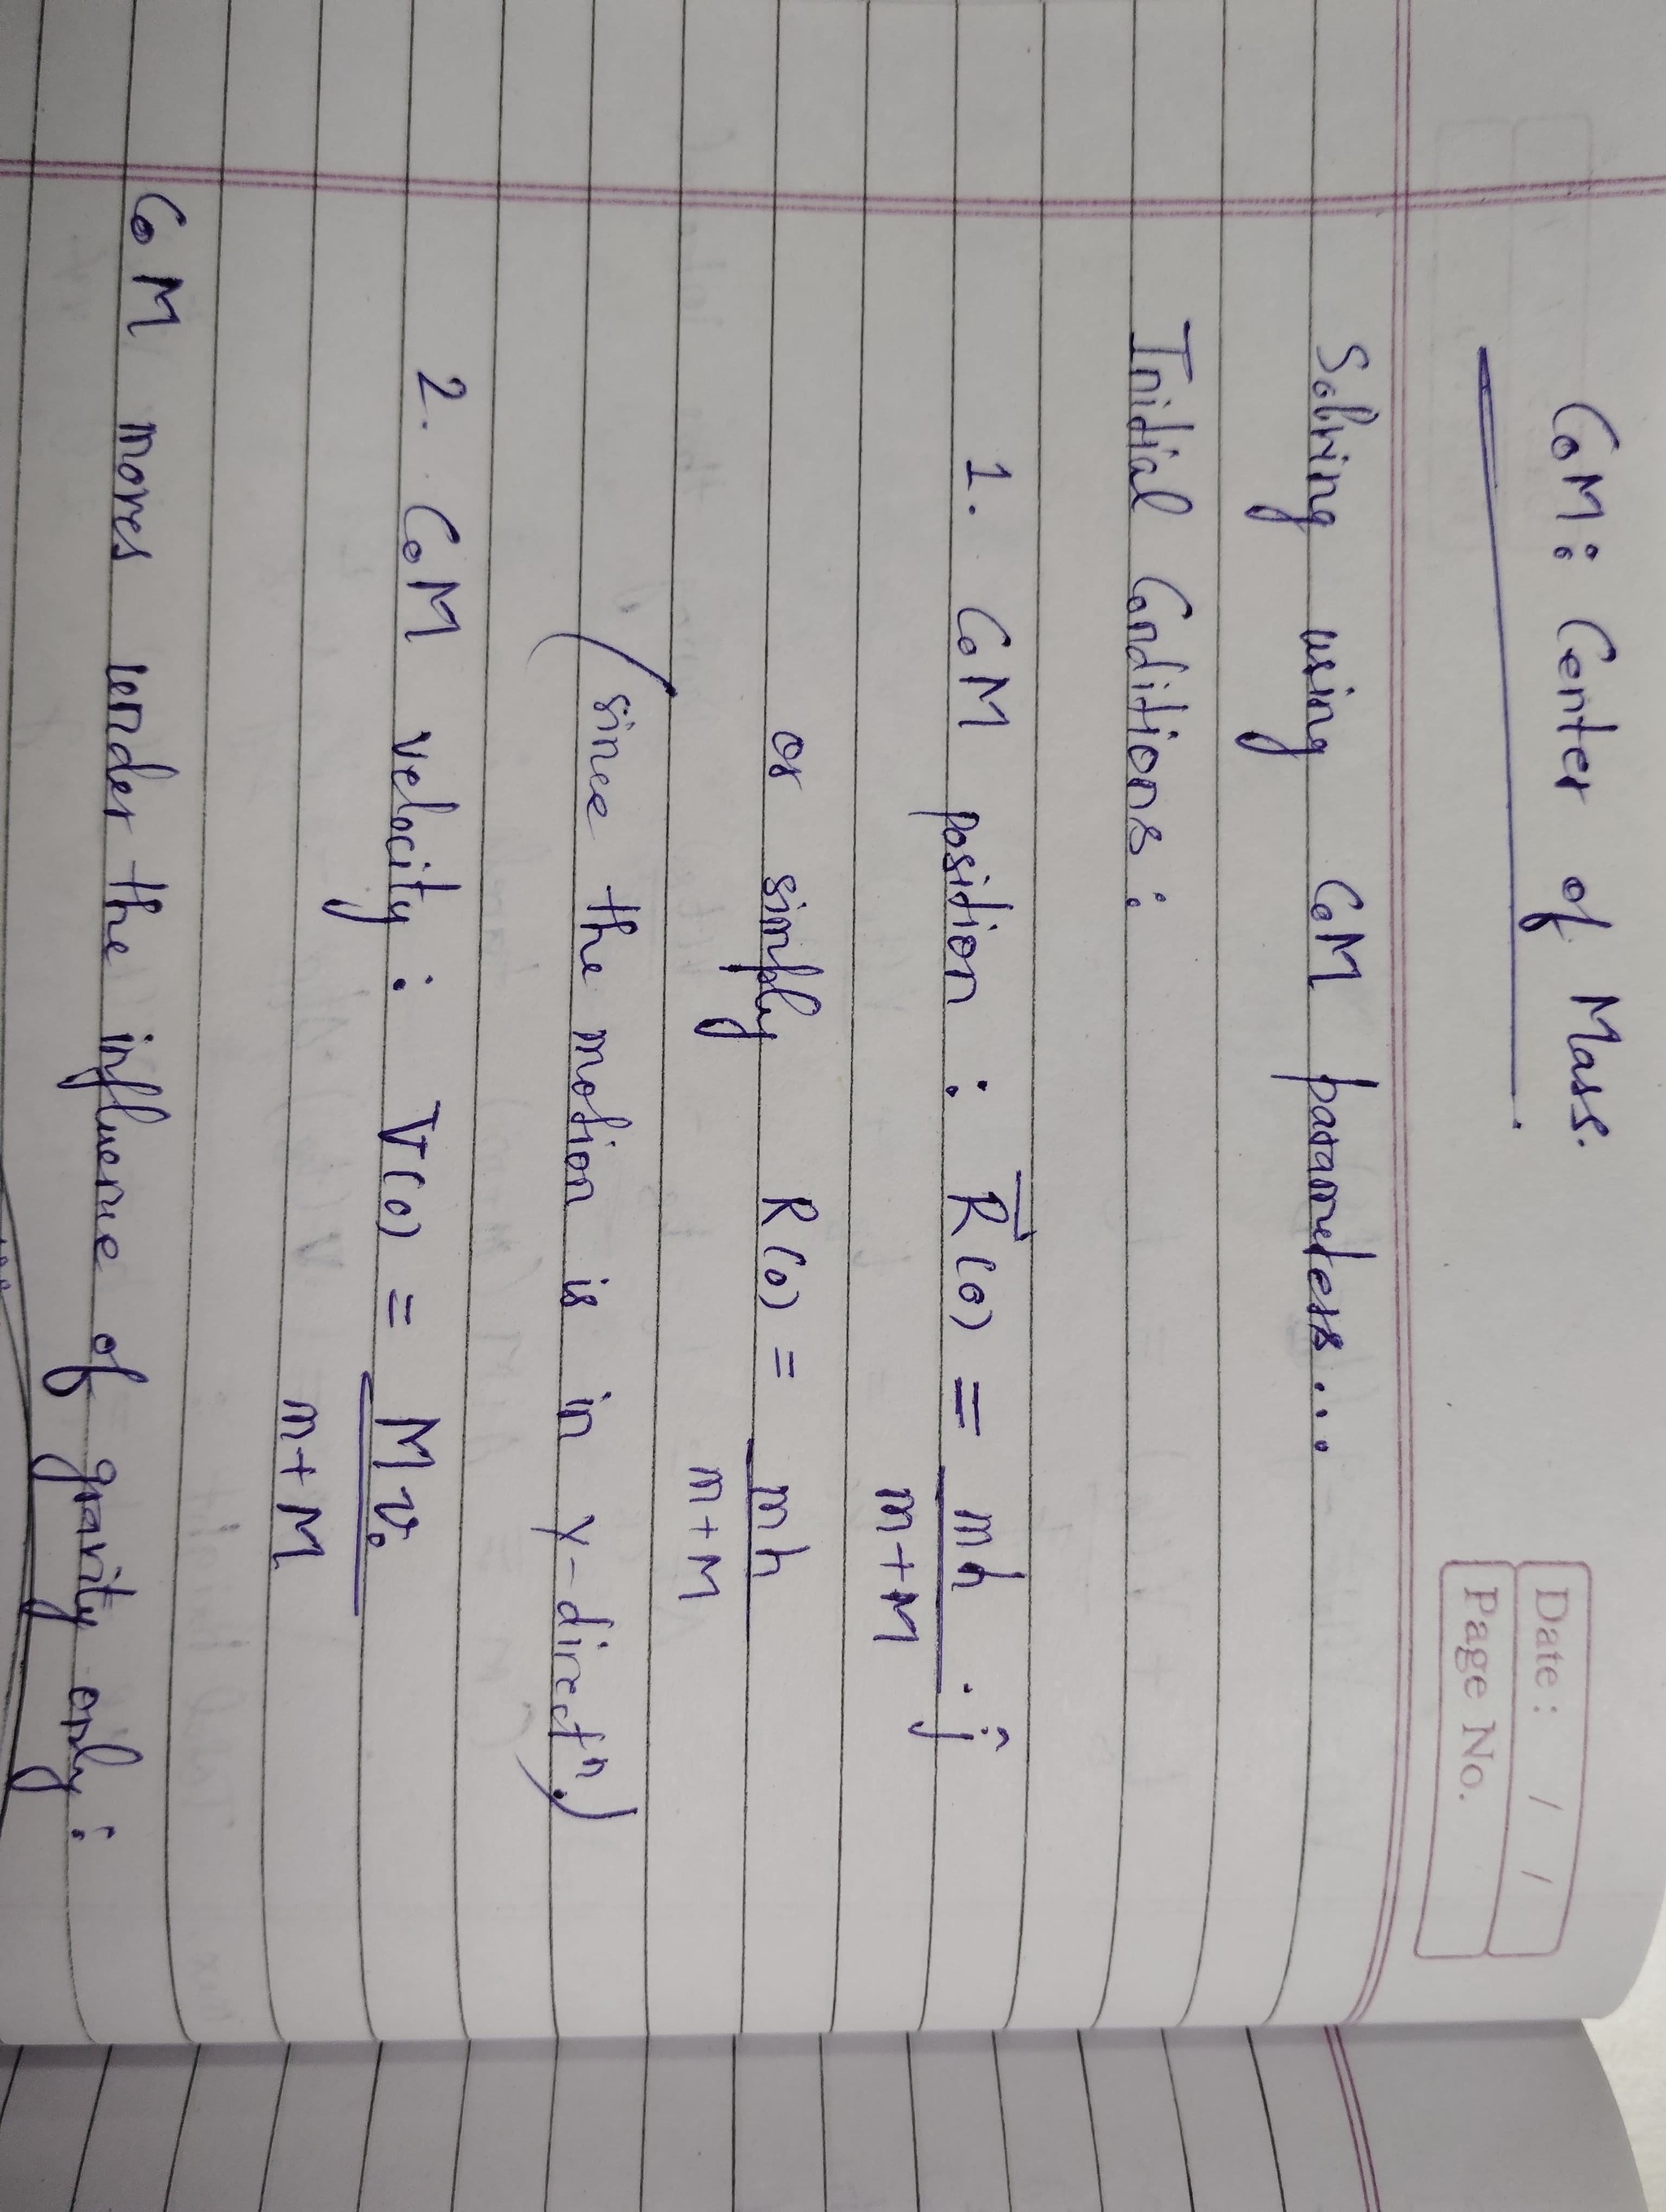 CoM: Center of Mass.
Date : / /
Page No.
Solving using CoM parameters...
Initial Conditions :
1. CoM position : R⃗(0) = mh/(m+M) . ĵ
or simply R(0) = mh/(m+M)
(since the motion is in y-directⁿ.)
2. CoM velocity : V(0) = Mv₀/(m+M)
CoM moves under the influence of gravity only :